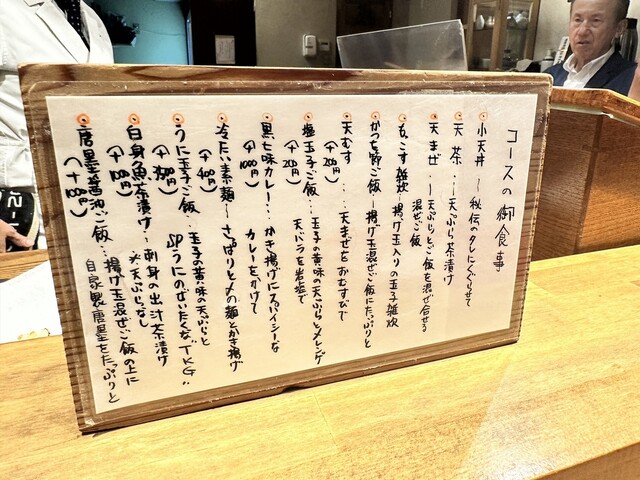 コースの御食事
小天丼 ― 秘伝のタレにくぐらせて
天茶 … 天ぷら茶漬け
天まぜ … 天ぷらとご飯を混ぜ合せる
混ぜご飯
もこす雑炊 ― 揚げ玉入りの玉子雑炊
かつを節ご飯 ― 揚げ玉混ぜご飯にたっぷりと
天むす … 天まぜをおむすびで
(+200円)
塩玉子ご飯 … 玉子の黄味の天ぷらとメレンゲ
(+200円)
天バラを岩塩で
黒七味カレー … かき揚げにスパイシーな
(+1000円)
カレーをかけて
冷たい素麺 ― さっぱりと〆の麺とかき揚げ
(+400円)
うに玉子ご飯 … 玉子の黄味の天ぷらと
SPうにのぜいたくな"TKG"
白身魚茶漬け … 刺身の出汁茶漬け
(+100円)
※天ぷらなし
唐墨醤油ご飯 … 揚げ玉混ぜご飯の上に
自家製唐墨をたっぷりと